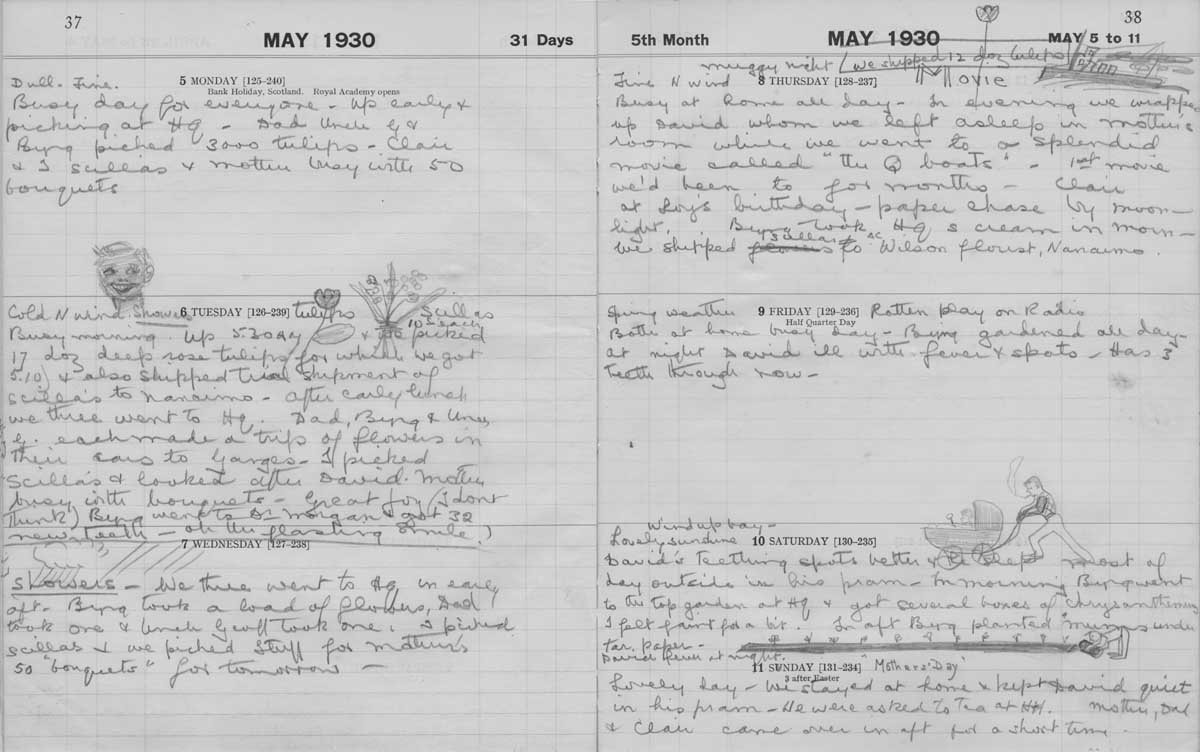 37
MAY 1930
31 Days
Dull. Fine.
5 MONDAY [125-240]
Bank Holiday, Scotland. Royal Academy opens
Busy day for everyone - Up early &
picking at HQ - Dad Uncle G &
Byng picked 3000 tulips - Clair
& I scillas & mother busy with 50
bouquets
Cold N wind. Showers
6 TUESDAY [126-239]
tulips
Scillas
10¢ each
Busy morning. Up 5.30 & picked
17 doz deep rose tulips for which we got
5.10) & also shipped trial shipment of
scillas to Nanaimo - after early lunch
we three went to HQ. Dad, Byng & Uncle
G. each made a trip of flowers in
their cars to Ganges - I picked
Scillas & looked after David. Mother
busy with bouquets - Great joy (I dont
think) Byng went to Dr Morgan & got 32
new teeth - oh the flashing smile!)
7 WEDNESDAY [127-238]
Showers - We three went to HQ in early
aft - Byng took a load of flowers, Dad
took one & Uncle Geoff took one. I picked
scillas & we picked stuff for mother's
50 "bouquets" for tomorrow -
38
5th Month
MAY 1930
MAY 5 to 11
muggy night (we shipped 12 doz tulips
Fine N wind
8 THURSDAY [128-237]
Movie
Busy at home all day - In evening we wrapped
up David whom we left asleep in mother's
room while we went to a splendid
movie called "the Q boats" - 1st movie
we'd been to for months - Clair
at Loy's birthday - paper chase by moon-
light. Byng took HQ's cream in morn -
we shipped scillas to Wilson florist, Nanaimo.
Spring weather
9 FRIDAY [129-236]
Half Quarter Day
Rotten play on Radio
Both at home busy day - Byng gardened all day -
at night David ill with fever & spots - Has 3
teeth through now -
Wind up bay -
Lovely sunshine
10 SATURDAY [130-235]
David's Teething spots better & he slept most of
day outside in his pram - In morning Byng went
to the top garden at HQ & got several boxes of chrysanthemum
I felt faint for a bit. In aft Byng planted "mums" under
tar paper -
David fever at night.
11 SUNDAY [131-234]
3 after Easter
"Mothers' Day"
Lovely day - We stayed at home & kept David quiet
in his pram - We were asked to Tea at HH. Mother, Dad
& Clair came over in aft for a short time.